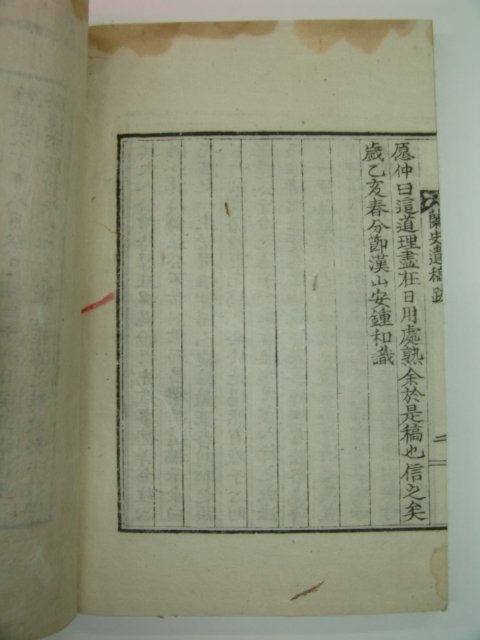 蘭史遺稿跋
二
愿仲曰這道理盡在日用處熟余於是稿也信之矣
歲乙亥春分節漢山安鍾和識